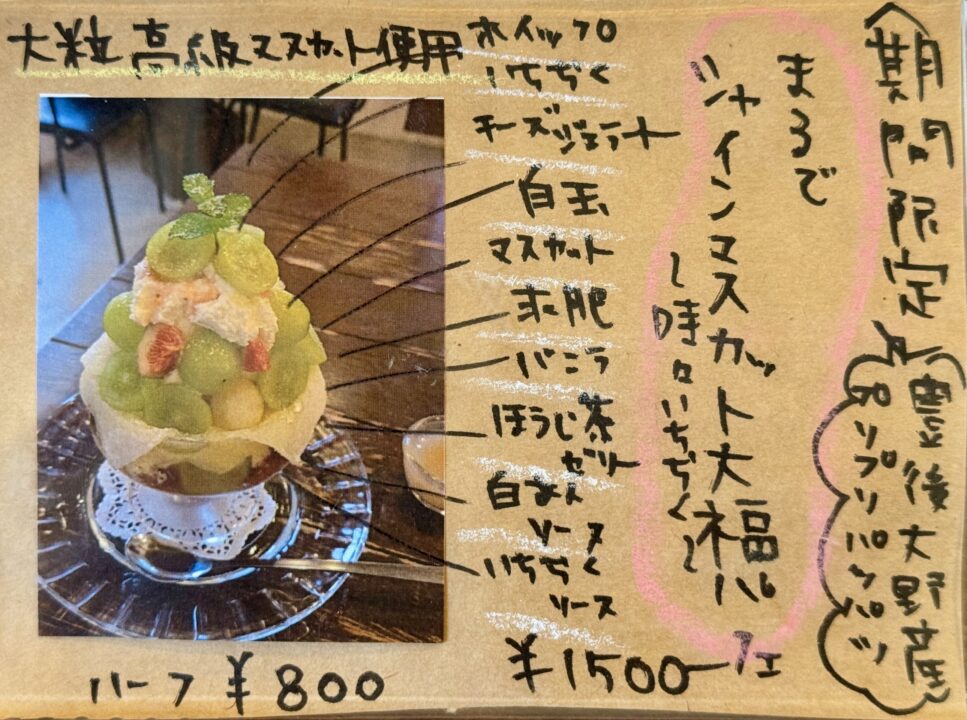 〈期間限定〉
豊後大野産
プリプリパツパツ
まるで
シャインマスカット大福パフェ
～時々いちぢく～
大粒高級マスカット使用
ホイップ
いちぢく
チーズジェラート
白玉
マスカット
求肥
バニラ
ほうじ茶
ゼリー
白あん
ソース
いちぢく
ソース
¥1500
ハーフ ¥800